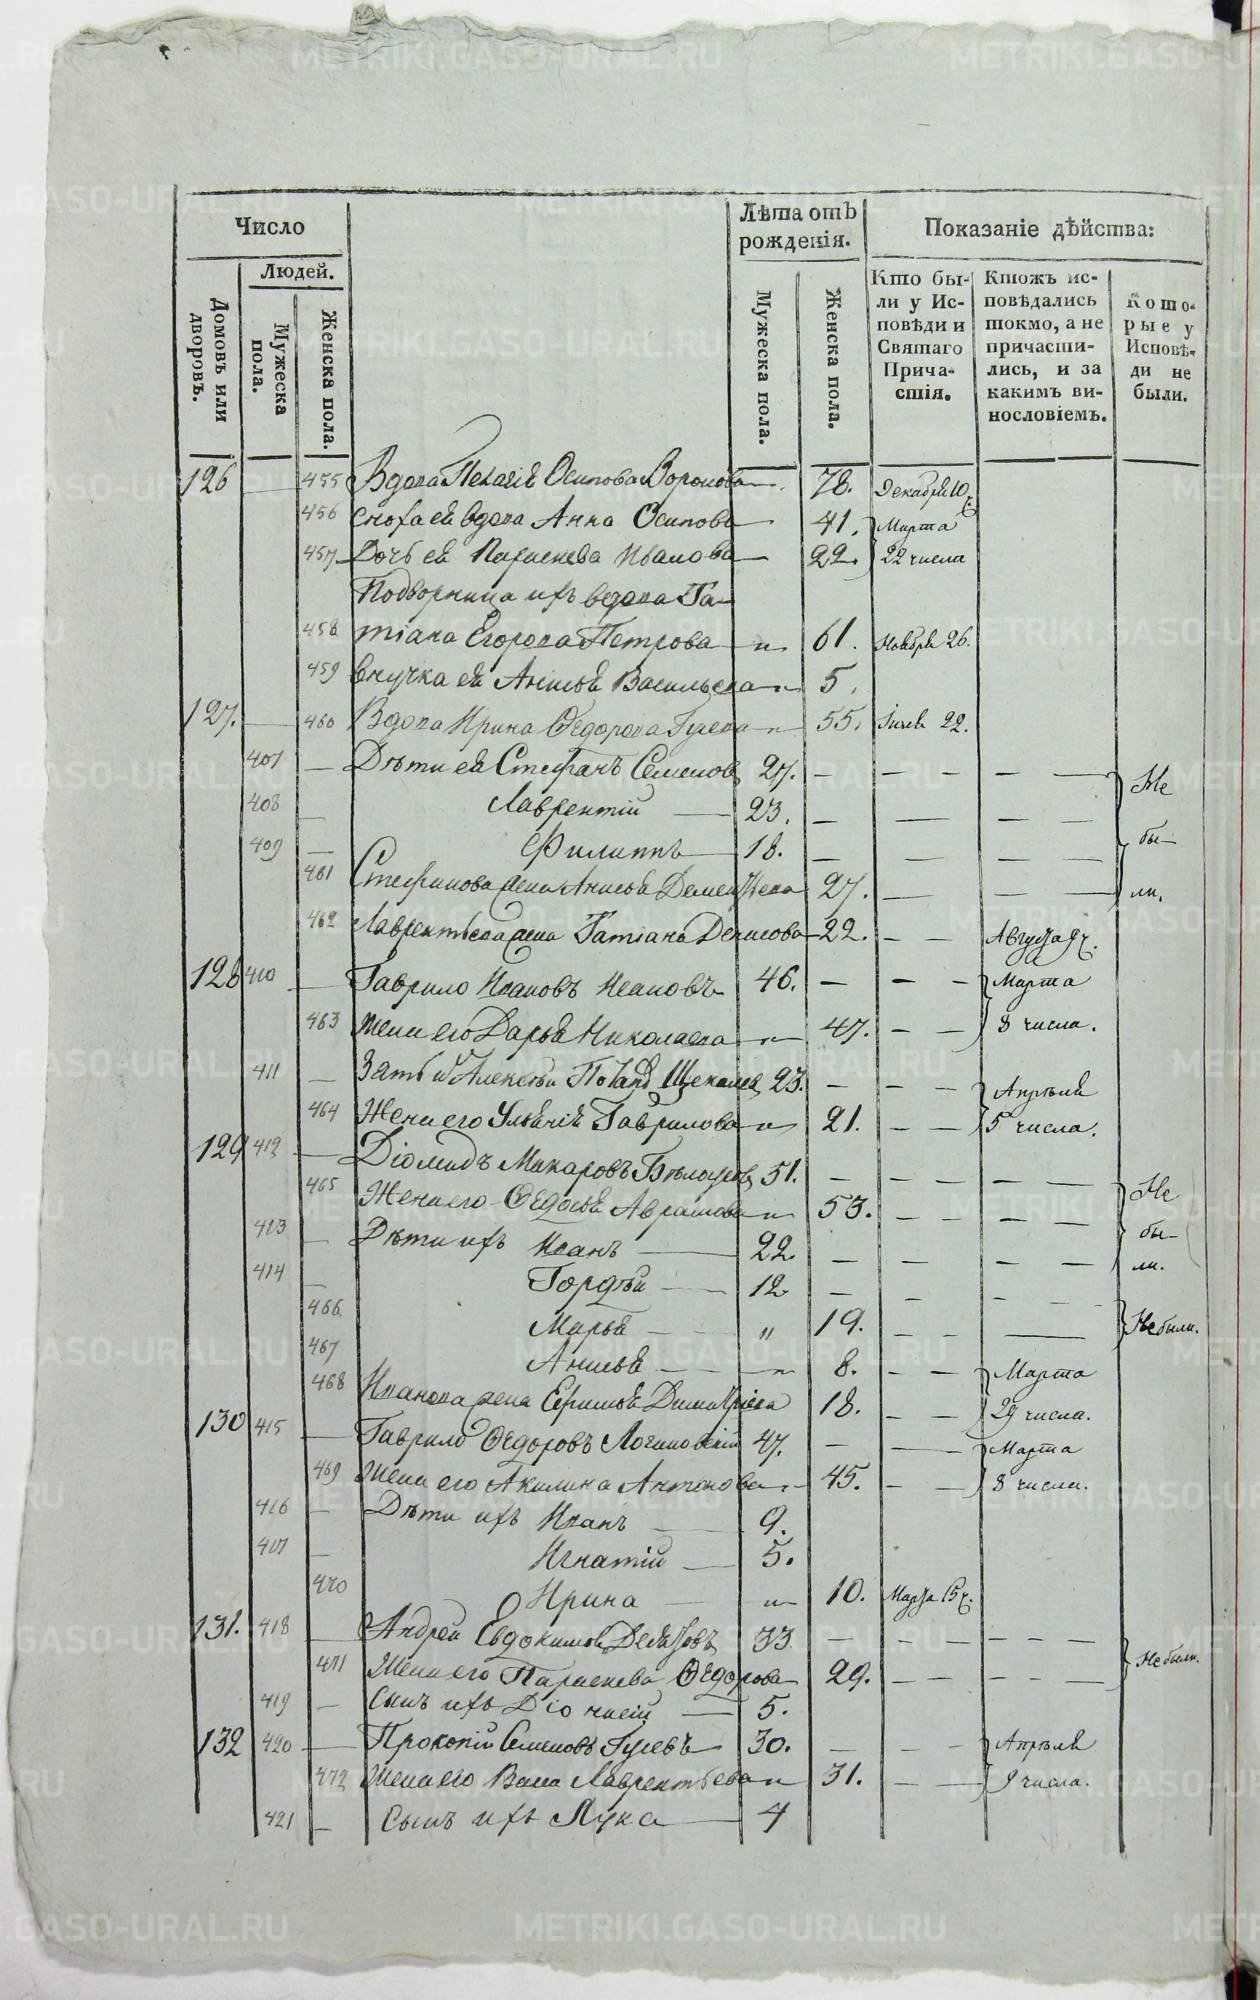 Число
Лѣта отъ рожденія.
Показаніе дѣйства:
Домовъ или дворовъ.
Людей.
Мужеска пола.
Женска пола.
Мужеска пола.
Женска пола.
Кто были у Исповѣди и Святаго Причастія.
Ктожъ исповѣдались токмо, а не причастились, и за какимъ винословіемъ.
Которые у Исповѣди не были.
126 455 Вдова Пелагія Осипова Воронова 78. Декабря 10
456 Сноха ея вдова Анна Осипова 41. Марта
457 Дочь ея Параскева Иванова 22. 22 числа
Подворница ихъ вдова Та-
458 тіана Егорова Петрова „ 61. Ноября 26.
459 внучка ея Анисья Васильева „ 5.
127. 460 Вдова Ирина Ѳедорова Гусева „ 55. 22.
407 — Дѣти ея Стефанъ Семеновъ 27. — — — — — Не
408 — Лаврентій — 23. — — — — — бы-
409 — Филиппъ — 18. — — — — — ли.
461 Стефанова жена Анисья Дементьева 27. — — — —
462 Лаврентьева жена Татіана Денисова 22. — — Августа 9 ч.
128 410 — Гаврило Ивановъ Ивановъ 46. — — — Марта
463 жена его Дарья Николаева „ 47. — — 8 числа.
411 — Зять и Алексѣй 23. — — — Апрѣля
464 Жена его Ульянія Гаврилова „ 21. — — 5 числа.
129 412 — Діомидъ Макаровъ Бѣлоусовъ 51. — — — — — Не
465 Жена его Ѳедосья Аврамова „ 53. — — — — бы-
413 — Дѣти ихъ Иванъ — 22. — — — — — ли.
414 — Гордѣй — 12 — — — —
466 Марья — „ 19. — — — Не были.
467 Анисья — „ 8. — — Марта
468 Иванова жена Ефимья Димитріева 18. — — 29 числа.
130 415 — Гаврило Ѳедоровъ Логиновскій 47. — — Марта
469 Жена его Акилина Антонова „ 45. — — 8 числа.
416 — Дѣти ихъ Иванъ — 9.
417 — Игнатій — 5.
470 Ирина — „ 10. Марта 15 ч.
131. 418 — Андрей Евдокимовъ 33 — — — — — — Не были.
471 Жена его Параскева Ѳедорова 29. — — — —
419 — Сынъ ихъ Діонисій — 5.
132 420 — Прокопій Семеновъ Гусевъ 30. — — — Апрѣля
472 Жена его Васса Лаврентьева „ 31. — — 9 числа.
421 — Сынъ ихъ Лука — 4
METRIKI.GASO-URAL.RU